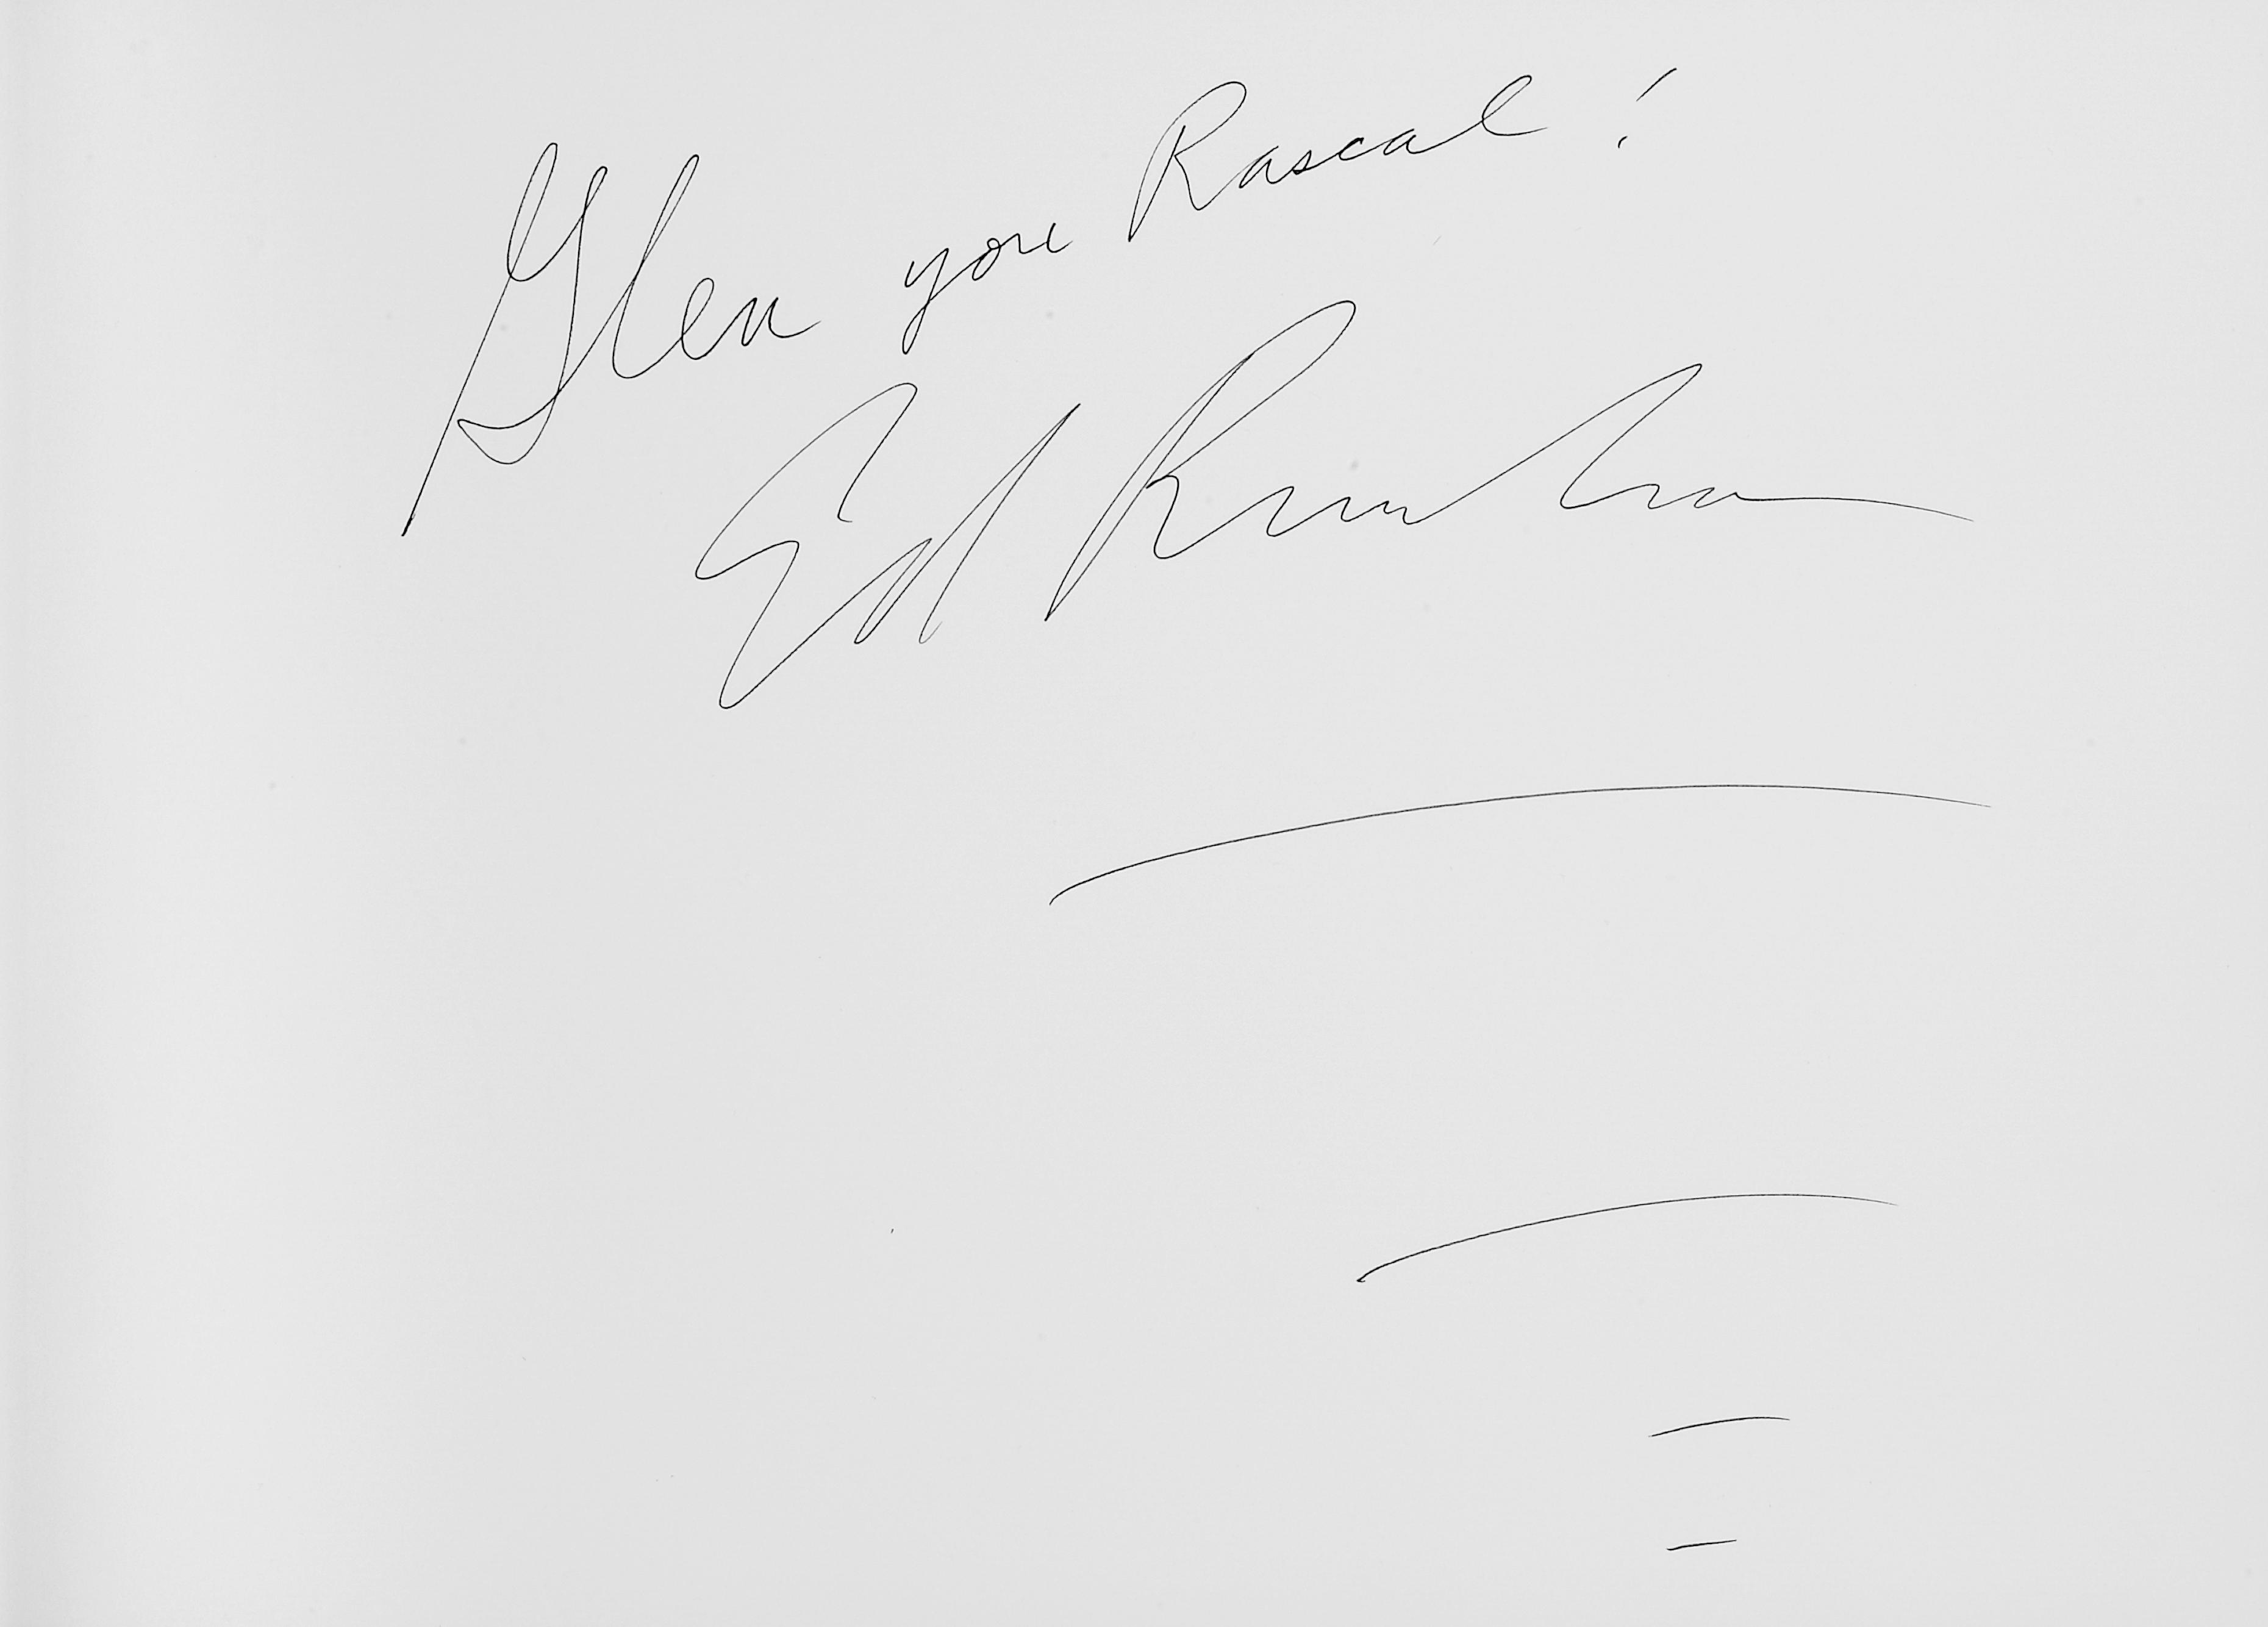 Glen you Rascal!
Ed